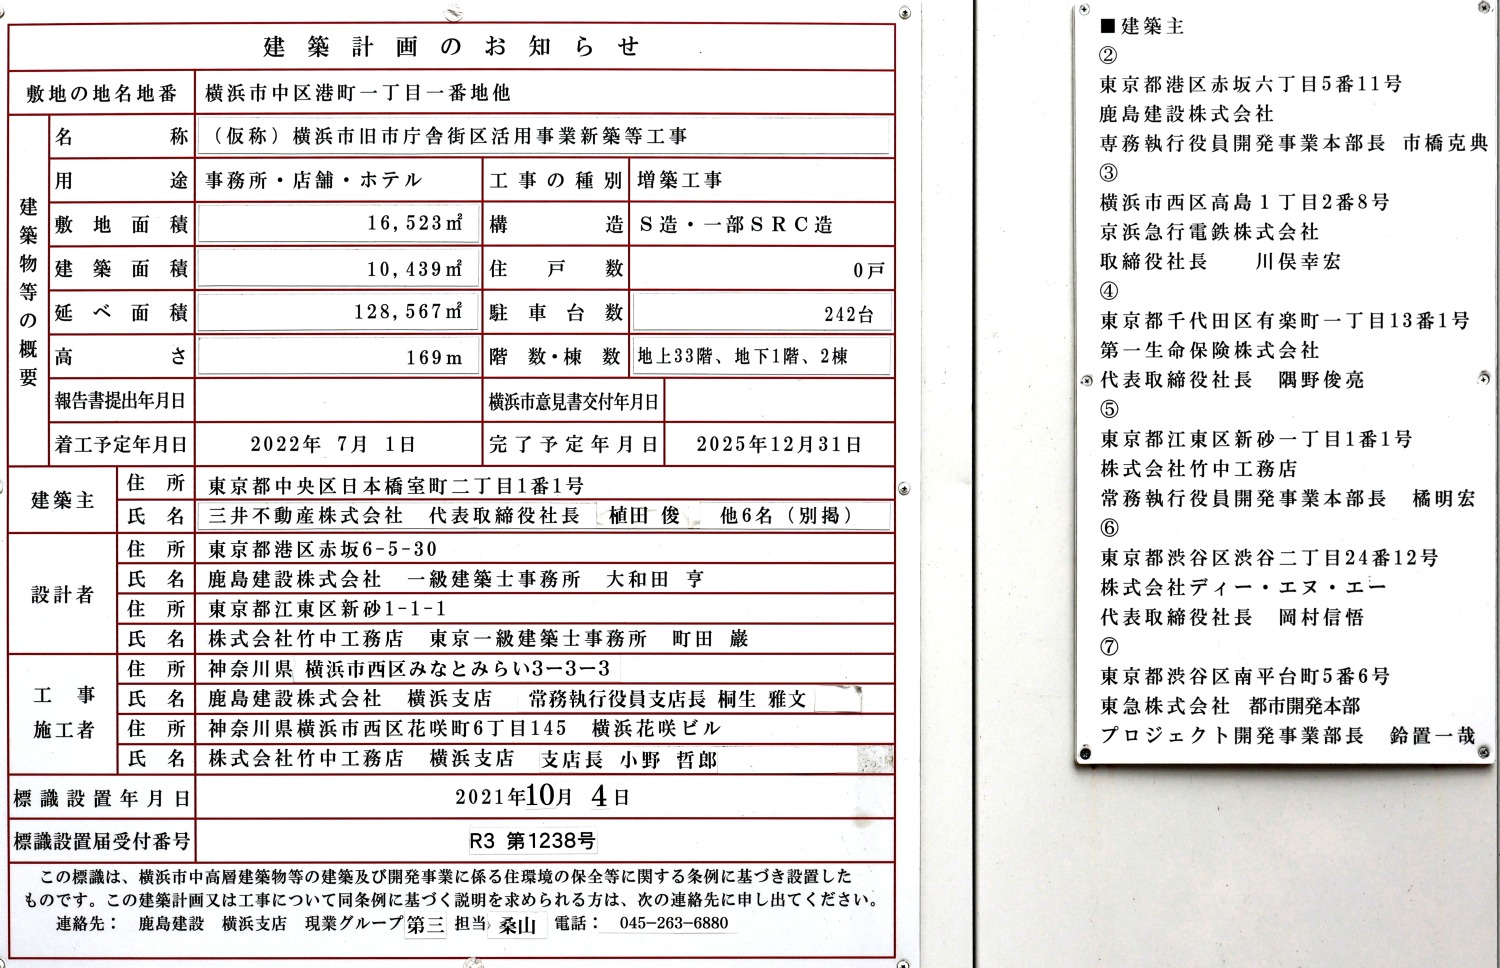 建築計画のお知らせ
敷地の地名地番 横浜市中区港町一丁目一番地他
建築物等の概要
名称 （仮称）横浜市旧市庁舎街区活用事業新築等工事
用途 事務所・店舗・ホテル 工事の種別 増築工事
敷地面積 16,523㎡ 構造 S造・一部SRC造
建築面積 10,439㎡ 住戸数 0戸
延べ面積 128,567㎡ 駐車台数 242台
高さ 169m 階数・棟数 地上33階、地下1階、2棟
報告書提出年月日 横浜市意見書交付年月日
着工予定年月日 2022年 7月 1日 完了予定年月日 2025年12月31日
建築主 住所 東京都中央区日本橋室町二丁目1番1号
氏名 三井不動産株式会社 代表取締役社長 植田 俊 他6名（別掲）
設計者 住所 東京都港区赤坂6-5-30
氏名 鹿島建設株式会社 一級建築士事務所 大和田 亨
住所 東京都江東区新砂1-1-1
氏名 株式会社竹中工務店 東京一級建築士事務所 町田 巌
工事施工者 住所 神奈川県 横浜市西区みなとみらい3ー3ー3
氏名 鹿島建設株式会社 横浜支店 常務執行役員支店長 桐生 雅文
住所 神奈川県横浜市西区花咲町6丁目145 横浜花咲ビル
氏名 株式会社竹中工務店 横浜支店 支店長 小野 哲郎
標識設置年月日 2021年10月 4日
標識設置届受付番号 R3 第1238号
この標識は、横浜市中高層建築物等の建築及び開発事業に係る住環境の保全等に関する条例に基づき設置した
ものです。この建築計画又は工事について同条例に基づく説明を求められる方は、次の連絡先に申し出てください。
連絡先： 鹿島建設 横浜支店 現業グループ 第三 担当 桑山 電話： 045-263-6880
■建築主
②
東京都港区赤坂六丁目5番11号
鹿島建設株式会社
専務執行役員開発事業本部長 市橋克典
③
横浜市西区高島1丁目2番8号
京浜急行電鉄株式会社
取締役社長 川俣幸宏
④
東京都千代田区有楽町一丁目13番1号
第一生命保険株式会社
代表取締役社長 隅野俊亮
⑤
東京都江東区新砂一丁目1番1号
株式会社竹中工務店
常務執行役員開発事業本部長 橘明宏
⑥
東京都渋谷区渋谷二丁目24番12号
株式会社ディー・エヌ・エー
代表取締役社長 岡村信悟
⑦
東京都渋谷区南平台町5番6号
東急株式会社 都市開発本部
プロジェクト開発事業部長 鈴置一哉